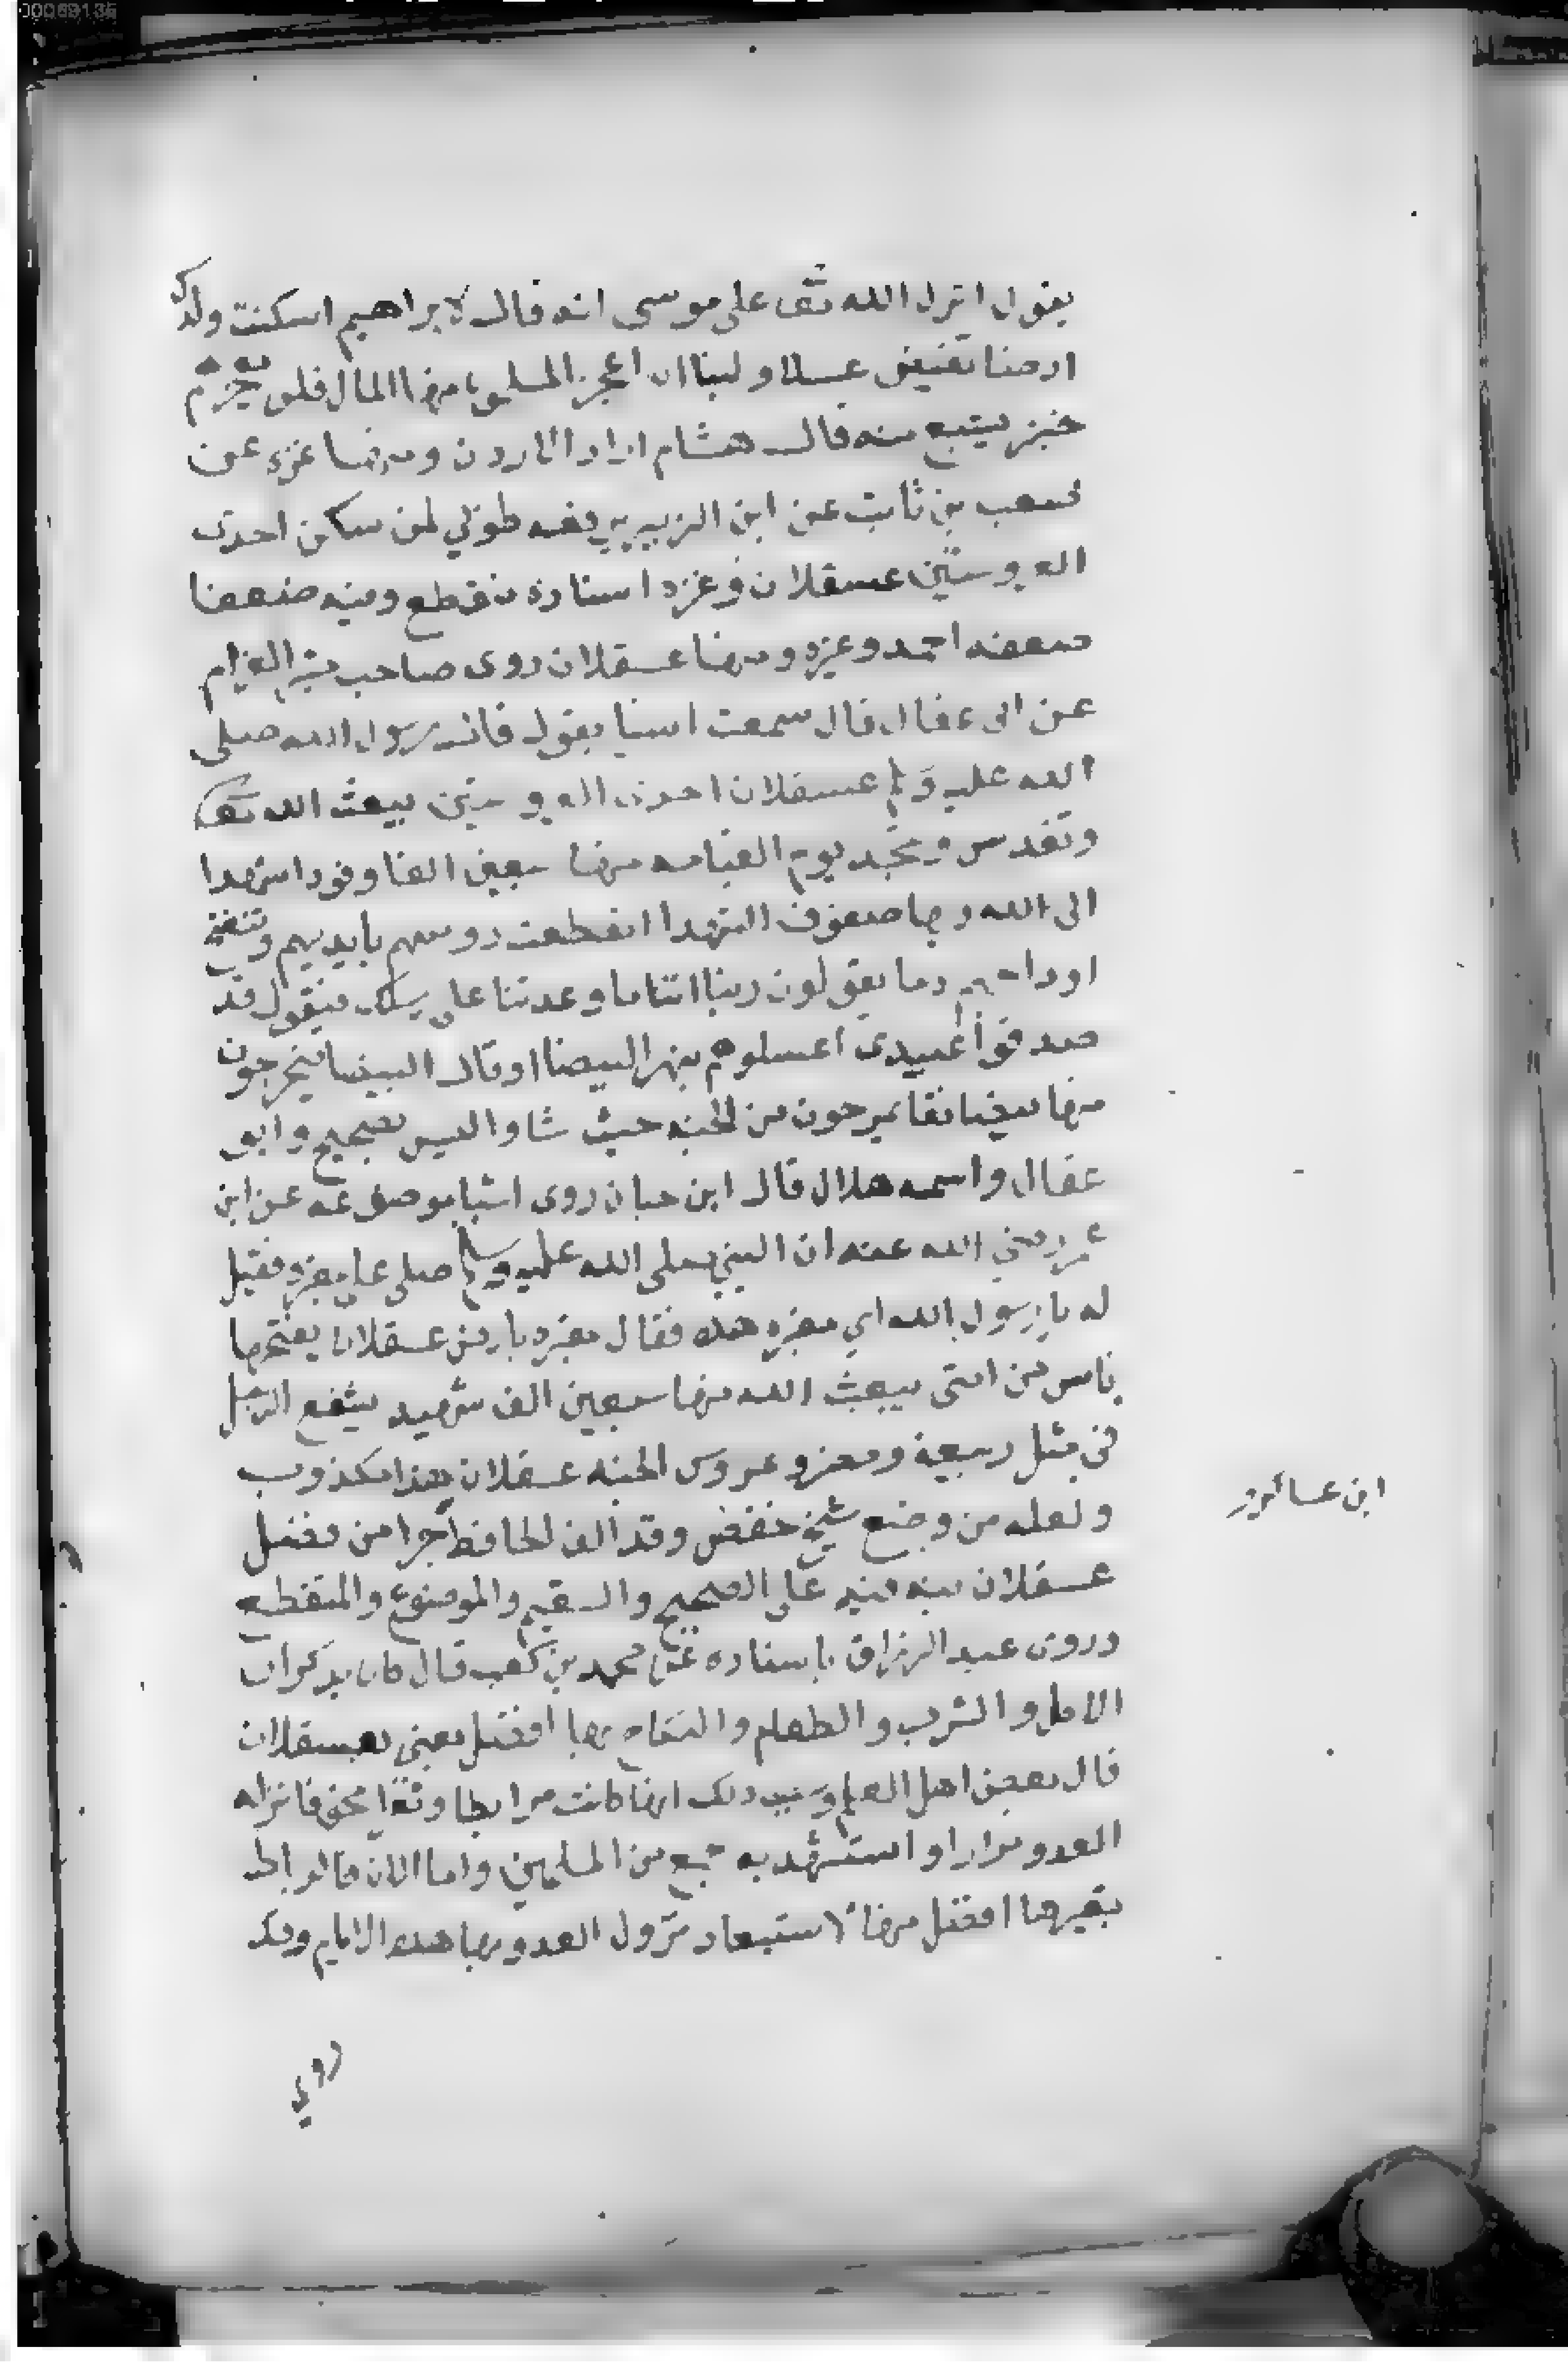 يقول انزل الله تعالى على موسى انه قال لابراهيم اسكنت ولدك
ارضنا تفيض عسلا ولبنا ان اعجز المسلمين هذا المال فلن يعجزهم
خبز يشبع منه قال هشام اراد الاردن ومنها غزه عن
مصعب بن ثابت عن ابن الزبير يرفعه طوبي لمن سكن احدى
العروستين عسقلان وغزه اسناده منقطع وفيه ضعفا
ضعفه احمد وغيره ومنها عسقلان روى صاحب مثير الغرام
عن ابي عقال قال سمعت انسا يقول قال رسول الله صلى
الله عليه وسلم عسقلان احدى العروستين يبعث الله تعالى
وتقدس وتمجد يوم القيامه منها سبعين الفا وفودا شهدا
الى الله وبها صفوف الشهدا انقطعت روسهم بايديهم وتنفخ
اوداجهم دما يقولون ربنا اتنا ما وعدتنا على رسلك فيقول قد
صدقوا عبيدى اغسلوهم بنهر البيضا او قال البيضا فيخرجون
منها بيضا نقا يمرحون من الجنه حيث شاوا ليس بصحيح وابو
عقال واسمه هلال قال ابن حبان روى اشيا موضوعه عن ابن
عمر رضي الله عنه ان النبي صلى الله عليه وسلم صلى على مقبره فقيل
له يا رسول الله اي مقبره هذه فقال مقبره بارض عسقلان يفتحها
ناس من امتى يبعث الله منها سبعين الف شهيد يشفع الرجل
في مثل ربيعة ومضر وعروس الجنه عسقلان هذا مكذوب
ولعله من وضع شيخ حفص وقد الف الحافظ جزا من فضل
ابن عساكر
عسقلان بينه فيه على الصحيح والسقيم والموضوع والمنقطع
وروى عبد الرزاق باسناده عن محمد بن كعب قال كان يذكر ان
الاكل والشرب والطعام والنكاح بها افضل يعنى بعسقلان
قال بعض اهل العلم وسبب ذلك انها كانت مرابطا وثغرا مخوفا نزله
العدو مرارا واستشهد به جمع من المسلمين واما الان فالرباط
بغيرها افضل منها لاستبعاد نزول العدو بها هذه الايام وقد
روي